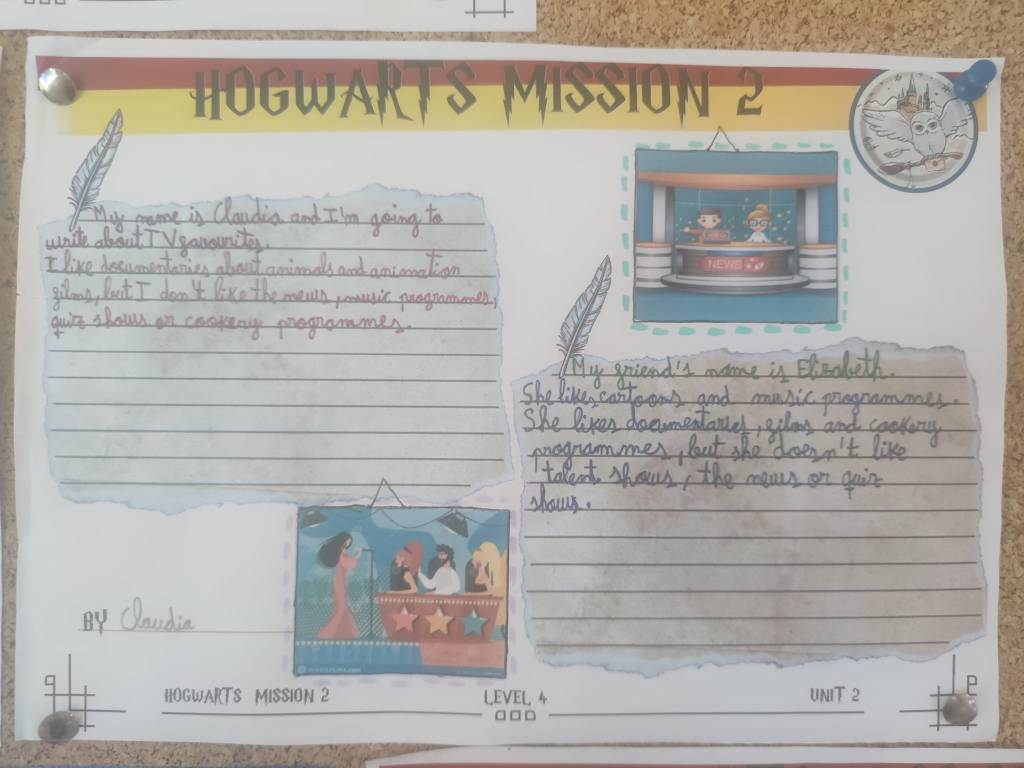 HOGWARTS MISSION 2
My name is Claudia and I'm going to
write about TV favourites.
I like documentaries about animals and animation
films, but I don't like the news, music programmes,
quiz shows or cookery programmes.
NEWS
My friend's name is Elizabeth.
She likes cartoons and music programmes.
She likes documentaries, films and cookery
programmes, but she doesn't like
talent shows, the news or quiz
shows.
BY Claudia
HOGWARTS MISSION 2
LEVEL 4
UNIT 2